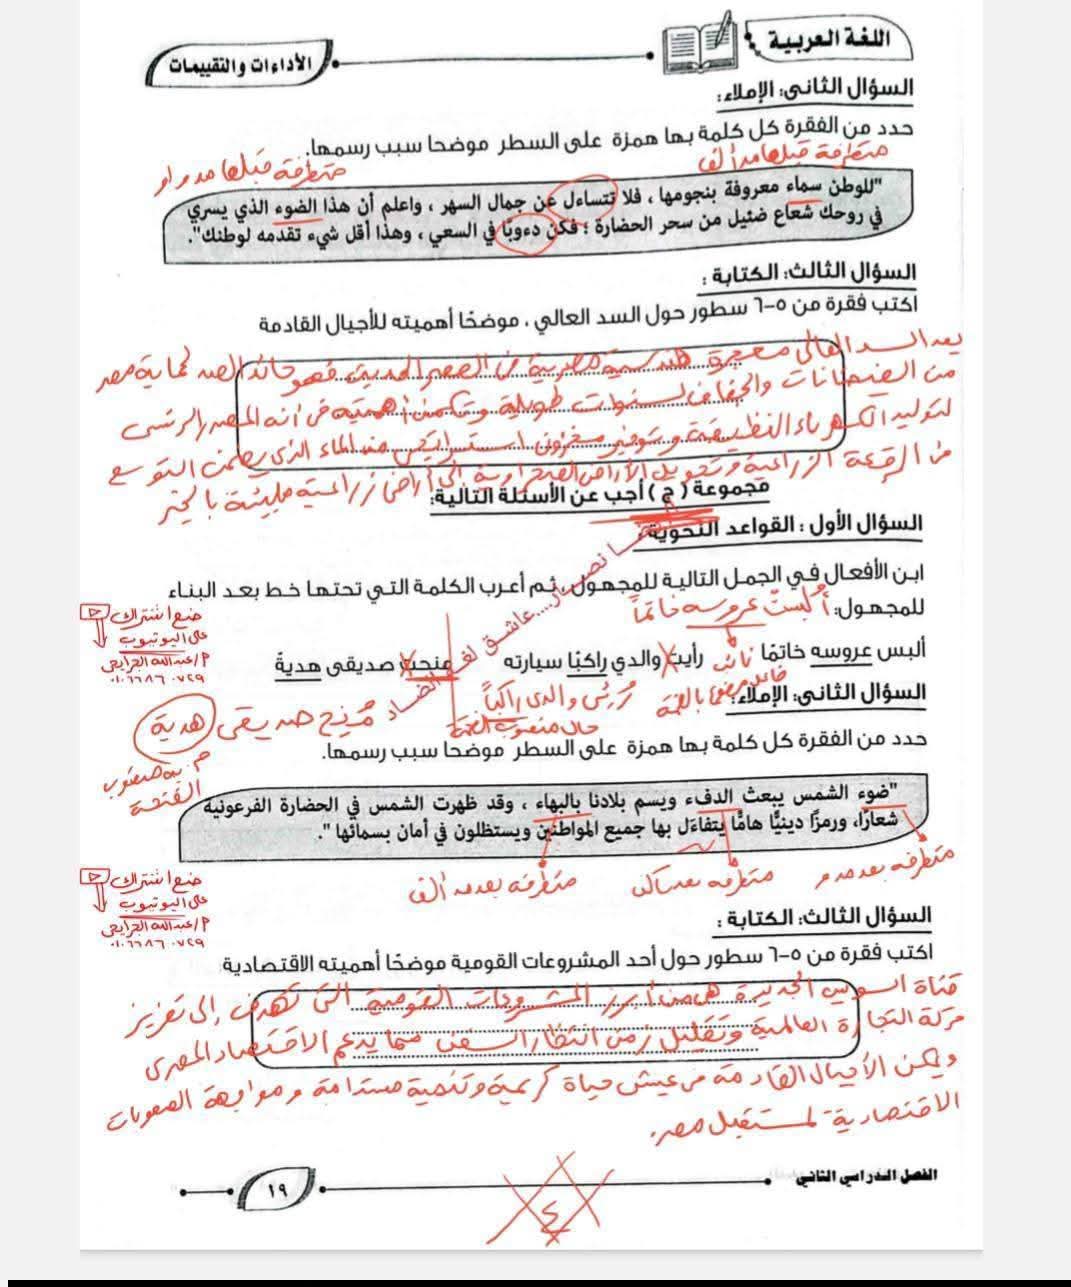 اللغة العربية
الأداءات والتقييمات
السؤال الثانى: الإملاء:
حدد من الفقرة كل كلمة بها همزة على السطر موضحا سبب رسمها.
متطرفة قبلها مد ألف
متطرفة قبلها مد واو
"للوطن سماء معروفة بنجومها ، فلا تتساءل عن جمال السهر ، واعلم أن هذا الضوء الذي يسري
في روحك شعاع ضئيل من سحر الحضارة ؛ فكن دءوبًا في السعي ، وهذا أقل شيء تقدمه لوطنك".
السؤال الثالث: الكتابة :
اكتب فقرة من ٥-٦ سطور حول السد العالي ، موضحًا أهميته للأجيال القادمة
يعد السد العالى معجزة هندسية مصرية فى العصر الحديث فهو حائط الصد لحماية مصر
من الفيضانات والجفاف لسنوات طويلة وتكمن أهميته فى أنه المصدر الرئيسى
لتوليد الكهرباء النظيفة وتوفير مخزون استراتيجى من الماء الذى يضمن التوسع
فى الرقعة الزراعية وتحويل الأراضى الصحراوية إلى أراضى زراعية مليئة بالخير
مجموعة ( ج ) أجب عن الأسئلة التالية:
السؤال الأول : القواعد النحوية :
ابن الأفعال في الجمل التالية للمجهول ، ثم أعرب الكلمة التي تحتها خط بعد البناء
للمجهول: أُلبست عروسه خاتماً
ضع اشتراك
على اليوتيوب
م/عبدالله الجرايحى
ألبس عروسه خاتمًا
رأيت والدي راكبًا سيارته
منحت صديقى هدية
نائب فاعل مرفوع بالضمة
رُئى والدى راكباً
حال منصوب الفتحة
مُنح صديقى هدية
م. به منصوب
الفتحة
عاشق لغة الضاد
السؤال الثانى: الإملاء:
حدد من الفقرة كل كلمة بها همزة على السطر موضحا سبب رسمها.
"ضوء الشمس يبعث الدفء ويسم بلادنا بالبهاء ، وقد ظهرت الشمس في الحضارة الفرعونية
شعارًا، ورمزًا دينيًّا هامًّا يتفاءَل بها جميع المواطنين ويستظلون في أمان بسمائها ".
متطرفه بعد مد و
متطرفه بعد ساكن
متطرفه بعد مد ألف
ضع اشتراك
على اليوتيوب
م/عبدالله الجرايحى
السؤال الثالث: الكتابة :
اكتب فقرة من ٥-٦ سطور حول أحد المشروعات القومية موضحًا أهميته الاقتصادية
قناة السويس الجديدة هى من أبرز المشروعات القومية التى تهدف إلى تعزيز
حركة التجارة العالمية وتقليل زمن انتظار السفن مما يدعم الاقتصاد المصرى
ويمكن الأجيال القادمة من عيش حياة كريمة وتنمية مستدامة ومواجهة الصعوبات
الاقتصادية لمستقبل مصر.
الفصل الدراسي الثاني
١٩
٤